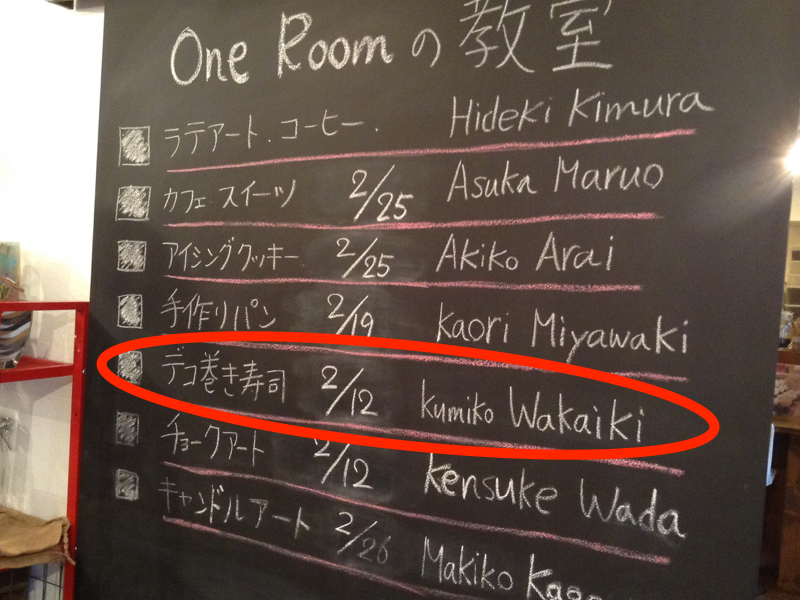 One Roomの教室
ラテアート.コーヒー. Hideki Kimura
カフェスイーツ 2/25 Asuka Maruo
アイシングクッキー 2/25 Akiko Arai
手作りパン 2/19 Kaori Miyawaki
デコ巻き寿司 2/12 Kumiko Wakaiki
チョークアート 2/12 Kensuke Wada
キャンドルアート 2/26 Makiko